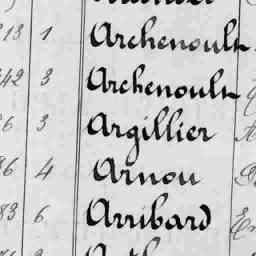 313 1 Archenoult
342 3 Archenoult
6 3 Argillier
86 4 Arnou
83 6 Arribard